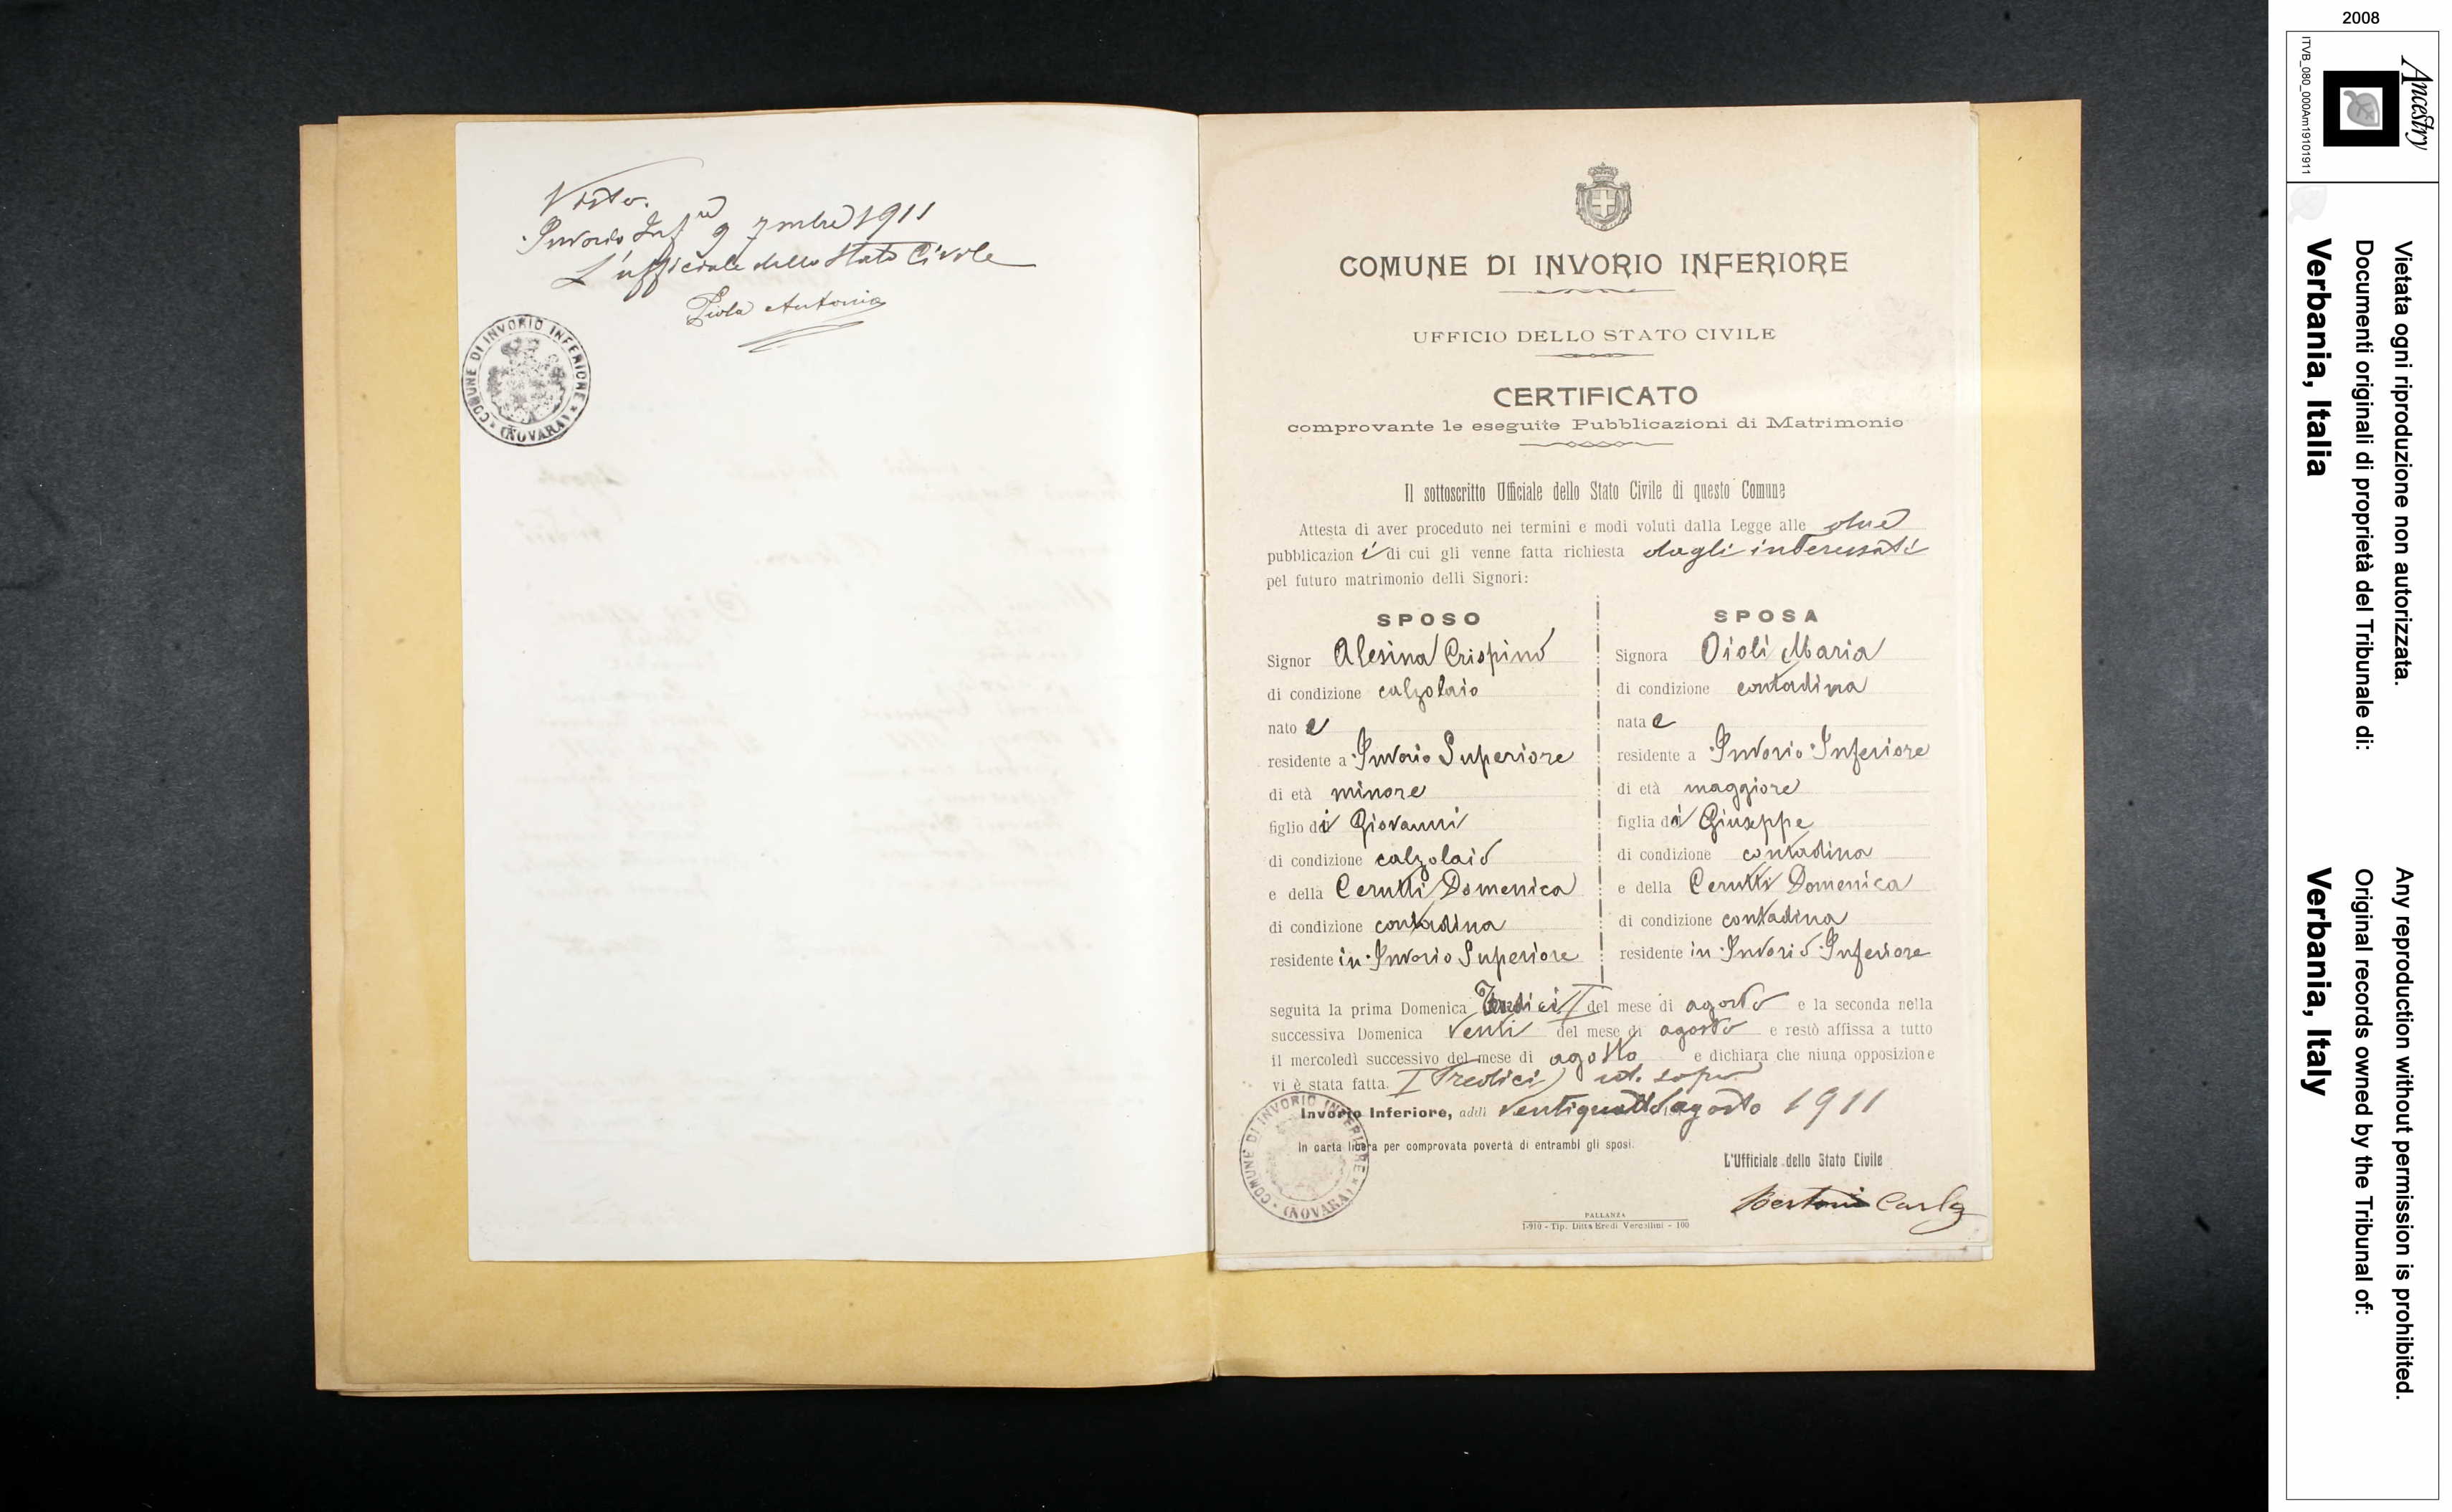 Visto.
Invorio Inf re 9 7mbre 1911
L'ufficiale dello Stato Civile
Piola Antonio
COMUNE DI INVORIO INFERIORE
(NOVARA)
COMUNE DI INVORIO INFERIORE
UFFICIO DELLO STATO CIVILE
CERTIFICATO
comprovante le eseguite Pubblicazioni di Matrimonio
Il sottoscritto Ufficiale dello Stato Civile di questo Comune
Attesta di aver proceduto nei termini e modi voluti dalla Legge alle due
pubblicazioni di cui gli venne fatta richiesta dagli interessati
pel futuro matrimonio delli Signori:
SPOSO
Signor Alesina Crispino
di condizione calzolaio
nato e
residente a Invorio Superiore
di età minore
figlio di Giovanni
di condizione calzolaio
e della Cerutti Domenica
di condizione contadina
residente in Invorio Superiore
SPOSA
Signora Oioli Maria
di condizione contadina
nata e
residente a Invorio Inferiore
di età maggiore
figlia di Giuseppe
di condizione contadina
e della Cerutti Domenica
di condizione contadina
residente in Invorio Inferiore
seguita la prima Domenica del mese di agosto e la seconda nella
successiva Domenica venti del mese di agosto e restò affissa a tutto
il mercoledì successivo del mese di agosto e dichiara che niuna opposizione
vi è stata fatta. (Tredici)
Invorio Inferiore, addì ventiquattro agosto 1911
In carta libera per comprovata povertà di entrambi gli sposi.
L'Ufficiale dello Stato Civile
Bertoni Carlo
COMUNE DI INVORIO INFERIORE
(NOVARA)
PALLANZA
1-910 - Tip. Ditta Eredi Vercellini - 100
2008
Ancestry
ITVB_080_000Am19101911
Vietata ogni riproduzione non autorizzata.
Documenti originali di proprietà del Tribunale di:
Verbania, Italia
Any reproduction without permission is prohibited.
Original records owned by the Tribunal of:
Verbania, Italy